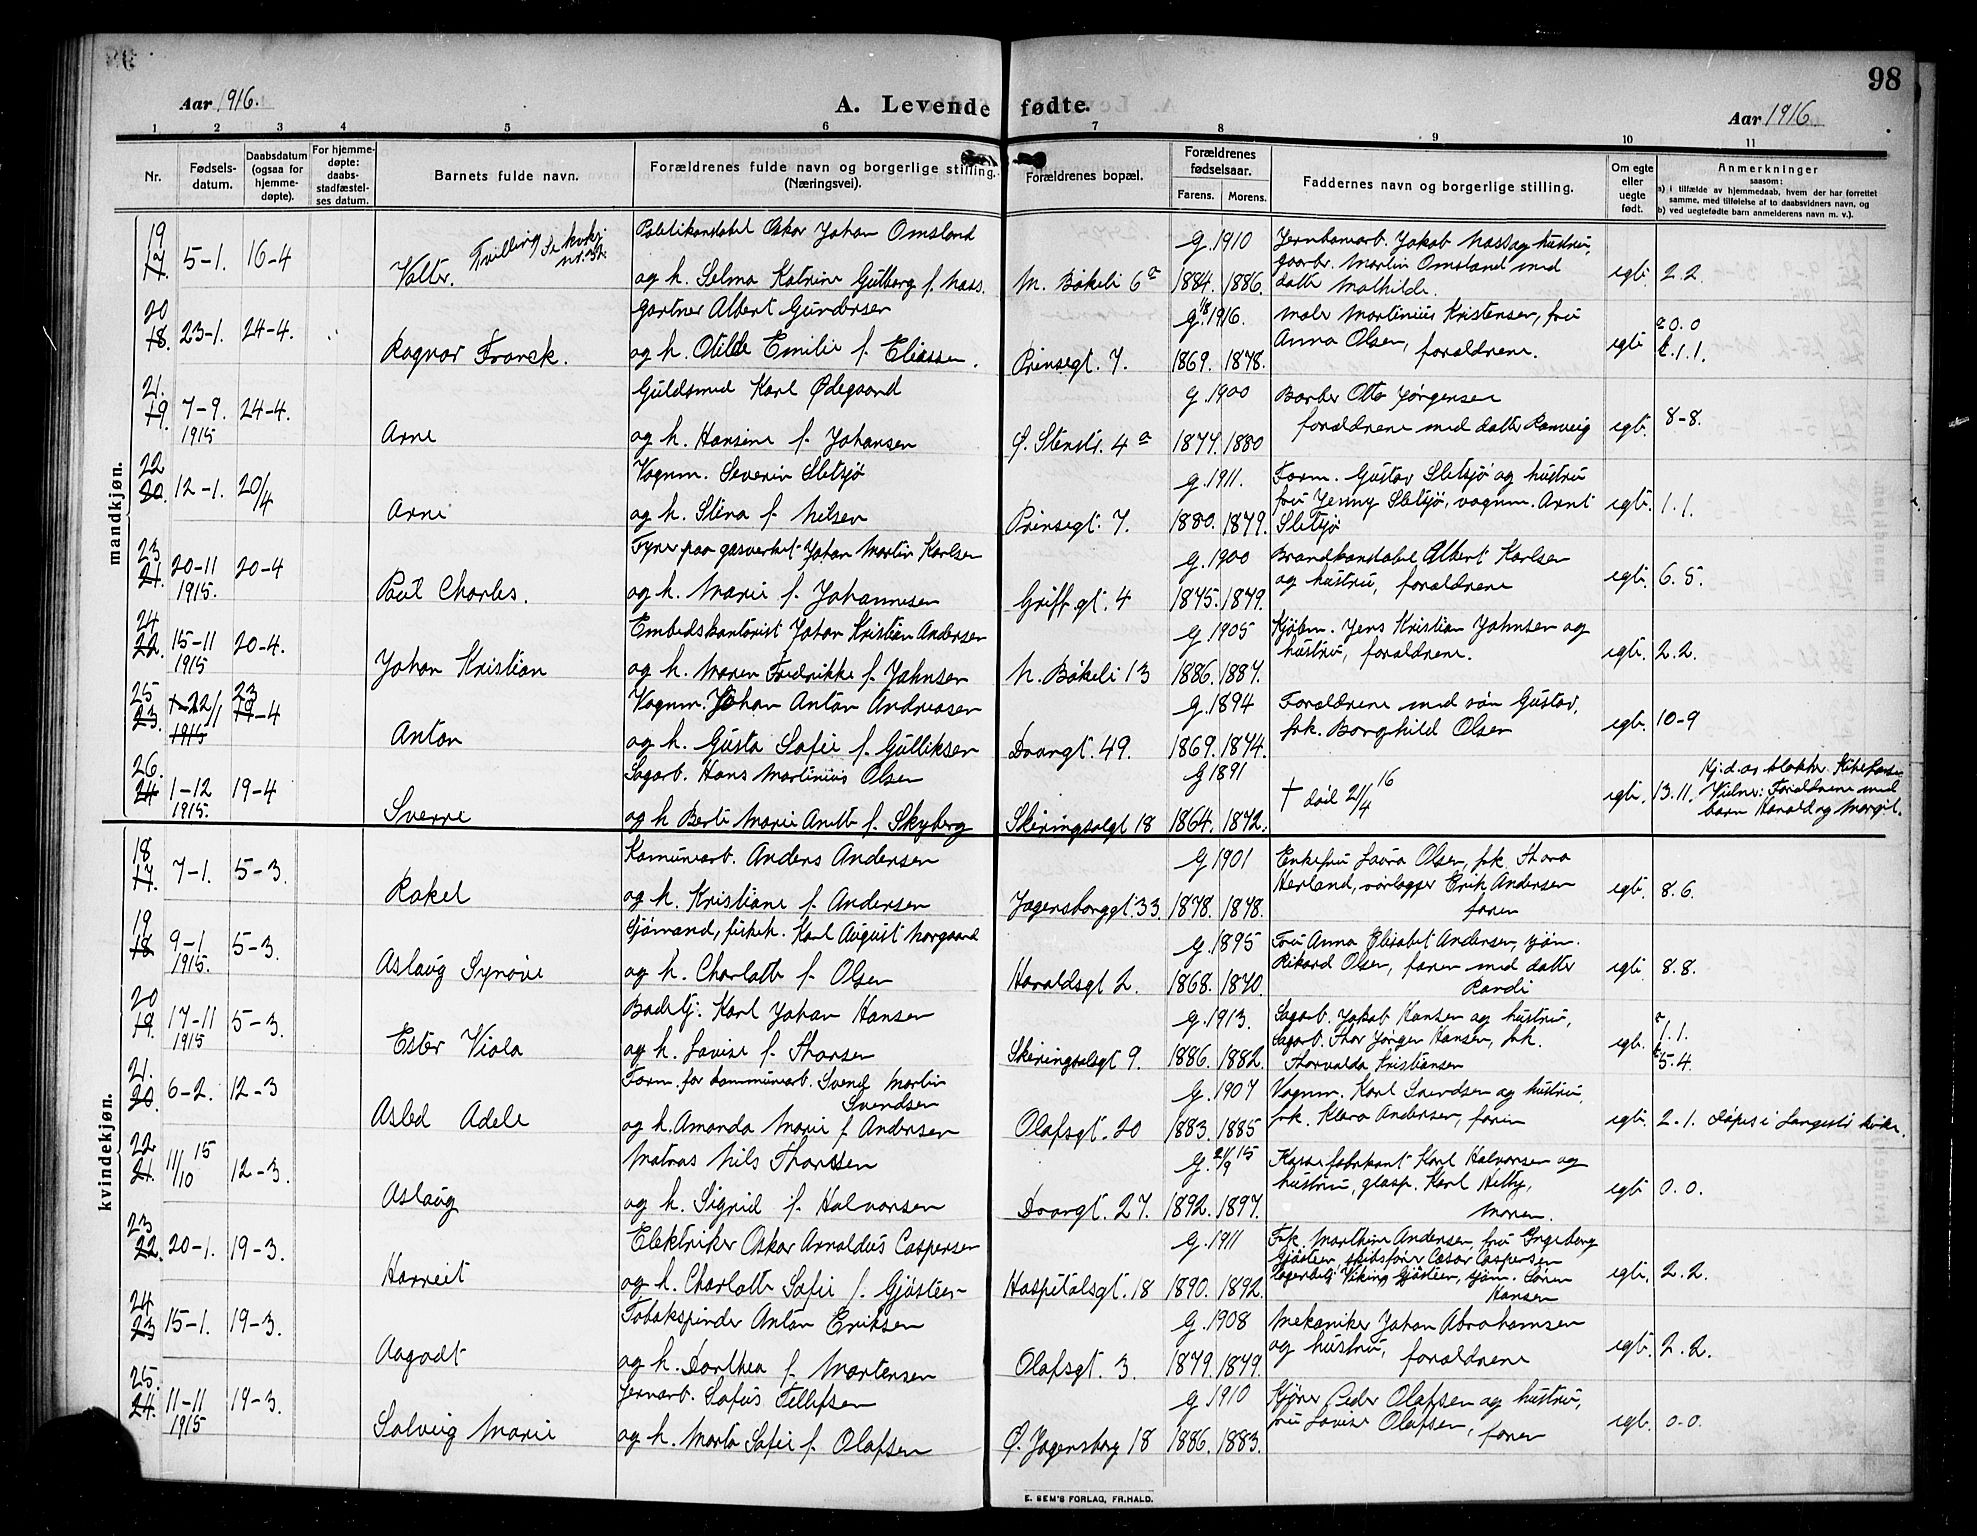 98
Aar 1916.
A. Levende fødte.
Aar 1916
1 2 3 4 5 6 7 8 9 10 11
Nr.
Fødsels-
datum.
Daabsdatum
(ogsaa for
hjemme-
døpte).
For hjemme-
døpte:
daabs-
stadfæstel-
ses datum.
Barnets fulde navn.
Forældrenes fulde navn og borgerlige stilling.
(Næringsvei).
Forældrenes bopæl.
Forældrenes
fødselsaar.
Farens. Morens.
Faddernes navn og borgerlige stilling.
Om egte
eller
uegte
født.
Anmerkninger
saasom:
a) i tilfælde av hjemmedaab, hvem der har forrettet
samme, med tilføielse af to daabsvidners navn, og
b) ved uegtefødte barn anmelderens navn m. v.).
mandkjøn.
19
17
5-1. 16-4
Valter.
Tvilling
Politikonstabel Oskar Johan Omsland
og h. Selma Katrine Gutborg f. Nass.
N. Bøkeli 6a
g. 1910
1884. 1886.
Jernbanearb. Jakob Nass og hustru,
gaarbr. Martin Omsland med
datter Mathilde.
egte. 2. 2.
20
18.
23-1. 24-4.
Ragnar Franck.
Gartner Albert Gundersen
og h. Otilde Emilie f. Eliassen.
Prinsegt. 7.
g. 1/8 1916.
1869. 1878.
Maler Martinius Kristensen, fru
Anna Olsen, forældrene.
egte
a 0. 0
b. 1. 1.
21.
19.
7-9.
1915
24-4.
Arne
Guldsmed Karl Ødegaard
og h. Hansine f. Johansen
Ø. Stenstr. 4a
g. 1900
1877. 1880
Barber Otto Jørgensen
forældrene med datter Ranveig
egte. 8-8.
22
20.
12-1. 20/4
Arne
Vognm. Severin Sletsjø
og h. Stina f. Nilsen
Prinsegt. 7.
g. 1911.
1880. 1879.
Form. Gustav Sletsjø og hustru
fru Jenny Sletsjø, vognm. Arnt
Sletsjø
egte. 1. 1.
23
21.
20-11
1915.
20-4
Paul Charles.
Fyrer paa gasverket Johan Martin Karlsen
og h. Marie f. Johannesen
Griff.gt. 4
g. 1900
1875. 1879.
Brandkonstabel Albert Karlsen
og hustru, forældrene
egte. 6. 5.
24
22.
15-11
1915
20-4.
Johan Kristian
Embedskontorist Johan Kristian Andersen
og h. Maren Fredrikke f. Johnsen
N. Bøkeli 13
g. 1905
1886. 1887.
Kjøbm. Jens Kristian Johnsen og
hustru, forældrene.
egte. 2. 2.
25
23.
22/1
1915
23
19-4
Anton
Vognm. Johan Anton Andreasen
og h. Gusta Sofie f. Gulliksen
Dronngt. 49.
g. 1894
1869. 1874.
Forældrene med søn Gustav,
frk. Borghild Olsen
egte. 10-9
26.
24
1-12
1915.
19-4
Sverre
Sagarb. Hans Martinius Olsen
og h Berte Marie Anette f. Skyberg
Skiringsalgt 18
g 1891
1864. 1872.
† død 21/4 16
egte. 13. 11.
Forældrene med
barn Harald og Margit.
kvindekjøn.
18
17.
7-1. 5-3.
Rakel
Komunearb. Anders Andersen
og h. Kristiane f. Andersen
Jegersborggt. 33.
g 1901
1878. 1878.
Enkefru Laura Olsen, frk. Thora
Herland, rørlægger Erik Andersen
faren
egte. 8. 6.
19
18
9-1
1915.
5-3.
Aslaug Synøve
Sjømand, fiskeh. Karl August Norgaard
og h. Charlotte f. Olsen
Haraldsgt 2.
g. 1895
1868. 1870.
Fru Anna Elisabet Andersen, sjøm.
Rikard Olsen, faren med datter
Randi
egte 8. 8.
20
19.
17-11
1915
5-3.
Ester Viola
Badetj. Karl Johan Hansen
og h. Lovise f. Thorsen
Skiringsalsgt 9.
g. 1913.
1886. 1882.
Sagarb. Jakob Hansen og hustru,
Sagarb. Thor Jørgen Hansen, frk.
Thorvalda Kristiansen
egte.
a 1. 1.
b 5-4
21.
20.
6-2. 12-3
Asled Adele
Form. for kommunearb. Svend Martin
Svendsen
og h. Amanda Marie f. Andersen
Olafsgt. 20
g. 1907
1883. 1885
Vognm. Karl Svendsen og hustru,
frk. Klara Andersen, faren
egte. 2. 1. Døpt i Langestr. kirke.
22
21.
11/10 15
12-3.
Aslaug
Matros Nils Thorssen
og h. Sigrid f. Halvorsen
Dronngt. 27.
g. 21/9 15
1892. 1897.
Kassefabrikant Karl Halvorsen og
hustru, glasp. Karl Hetby,
Moren.
egte 0. 0.
23
22.
20-1. 19-3.
Harreit
Elektriker Oskar Arnoldus Caspersen
og h. Charlotte Sofie f. Gjøsteen
Hospitalsgt. 18
g. 1911
1890. 1892.
Frk. Marthine Andersen, fru Ingeborg
Gjøsteen, skibsfører Cæsar Caspersen
lagerbetj. Viking Gjøsteen, sjøm. Søren
Hansen
egte. 2. 2.
24
23
15-1. 19-3.
Aagodt
Tobakspinder Anton Eriksen
og h. Dorthea f. Mortensen
Olafsgt. 3
g. 1908
1879. 1879.
Mekaniker Johan Abrahamsen
og hustru, forældrene
egte. 2. 2.
25.
24.
11-11
1915
19-3.
Solveig Marie
Jernarb. Sofus Tellefsen
og h. Marta Sofie f. Olafsen
Ø. Jegersborg 18
g. 1910
1886. 1883.
Kjører Peder Olafsen og hustru,
fru Lovise Olafsen, faren
egte. 0-0.
E. SEM'S FORLAG, FR.HALD.